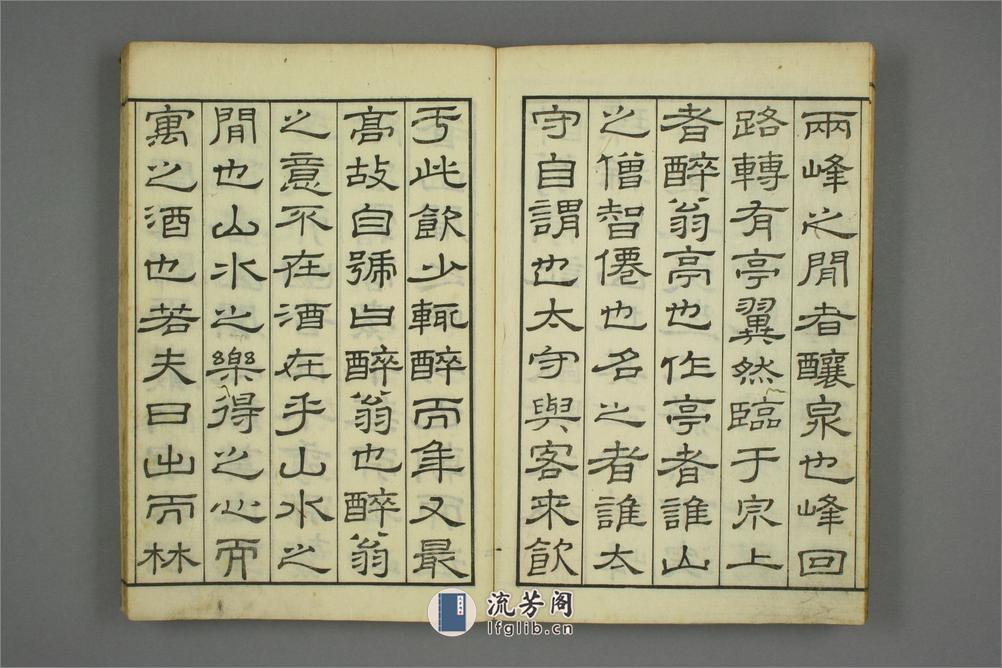 兩峰之閒者釀泉也峰回
路轉有亭翼然臨于宗上
者醉翁亭也作亭者誰山
之僧智僊也名之者誰太
守自謂也太守與客來飲
于此飲少輒醉而年又最
高故自號曰醉翁也醉翁
之意不在酒在乎山水之
閒也山水之樂得之心而
寓之酒也若夫日出而林
流芳阁
lfglib.cn